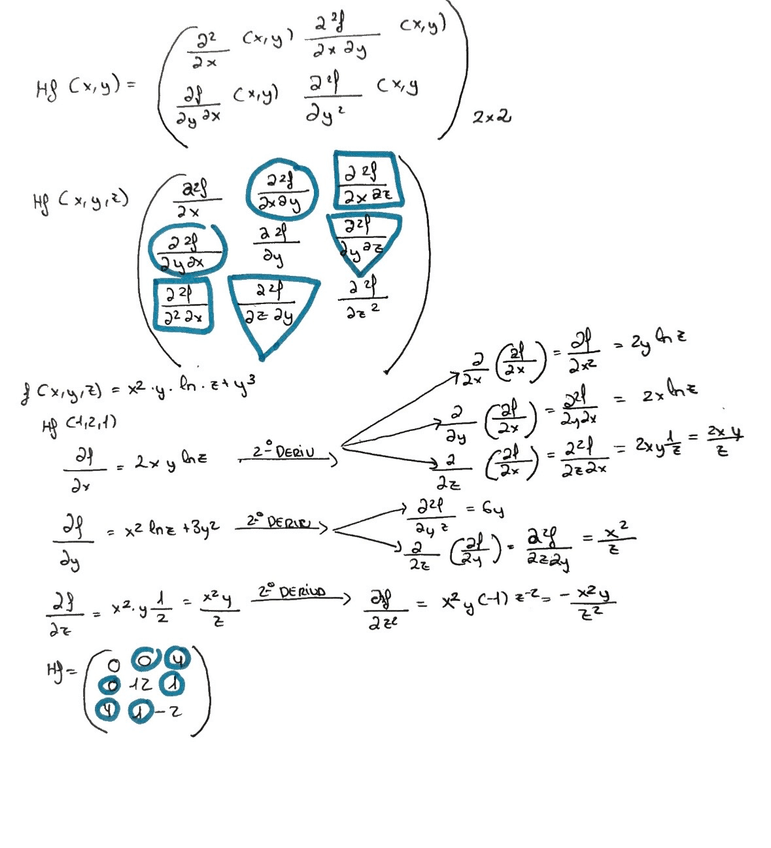 Hf (x,y) = ( ∂²/∂x (x,y) ∂²f/∂x∂y (x,y)
∂f/∂y∂x (x,y) ∂²f/∂y² (x,y ) 2x2
Hf (x,y,z) ( ∂2f/∂x ∂2f/∂x∂y ∂2f/∂x∂z
∂2f/∂y∂x ∂2f/∂y ∂2f/∂y∂z
∂2f/∂2∂x ∂2f/∂z∂y ∂2f/∂z² )
f (x,y,z) = x²·y·ln·z+y³
Hf (1,2,1)
∂f/∂x = 2xy lnz 2º DERIV → ∂/∂x (∂f/∂x) = ∂f/∂x² = 2y ln z
∂/∂y (∂f/∂x) = ∂2f/∂y∂x = 2x ln z
∂/∂z (∂f/∂x) = ∂2f/∂z∂x = 2xy 1/z = 2xy/z
∂f/∂y = x² lnz + 3y² 2º DERIV → ∂2f/∂y² = 6y
∂/∂z (∂f/∂y) = ∂2f/∂z∂y = x²/z
∂f/∂z = x²·y 1/z = x²y/z 2º DERIVD → ∂f/∂z² = x²y(-1) z⁻² = -x²y/z²
Hf = ( 0 0 4
0 12 1
4 1 -2 )